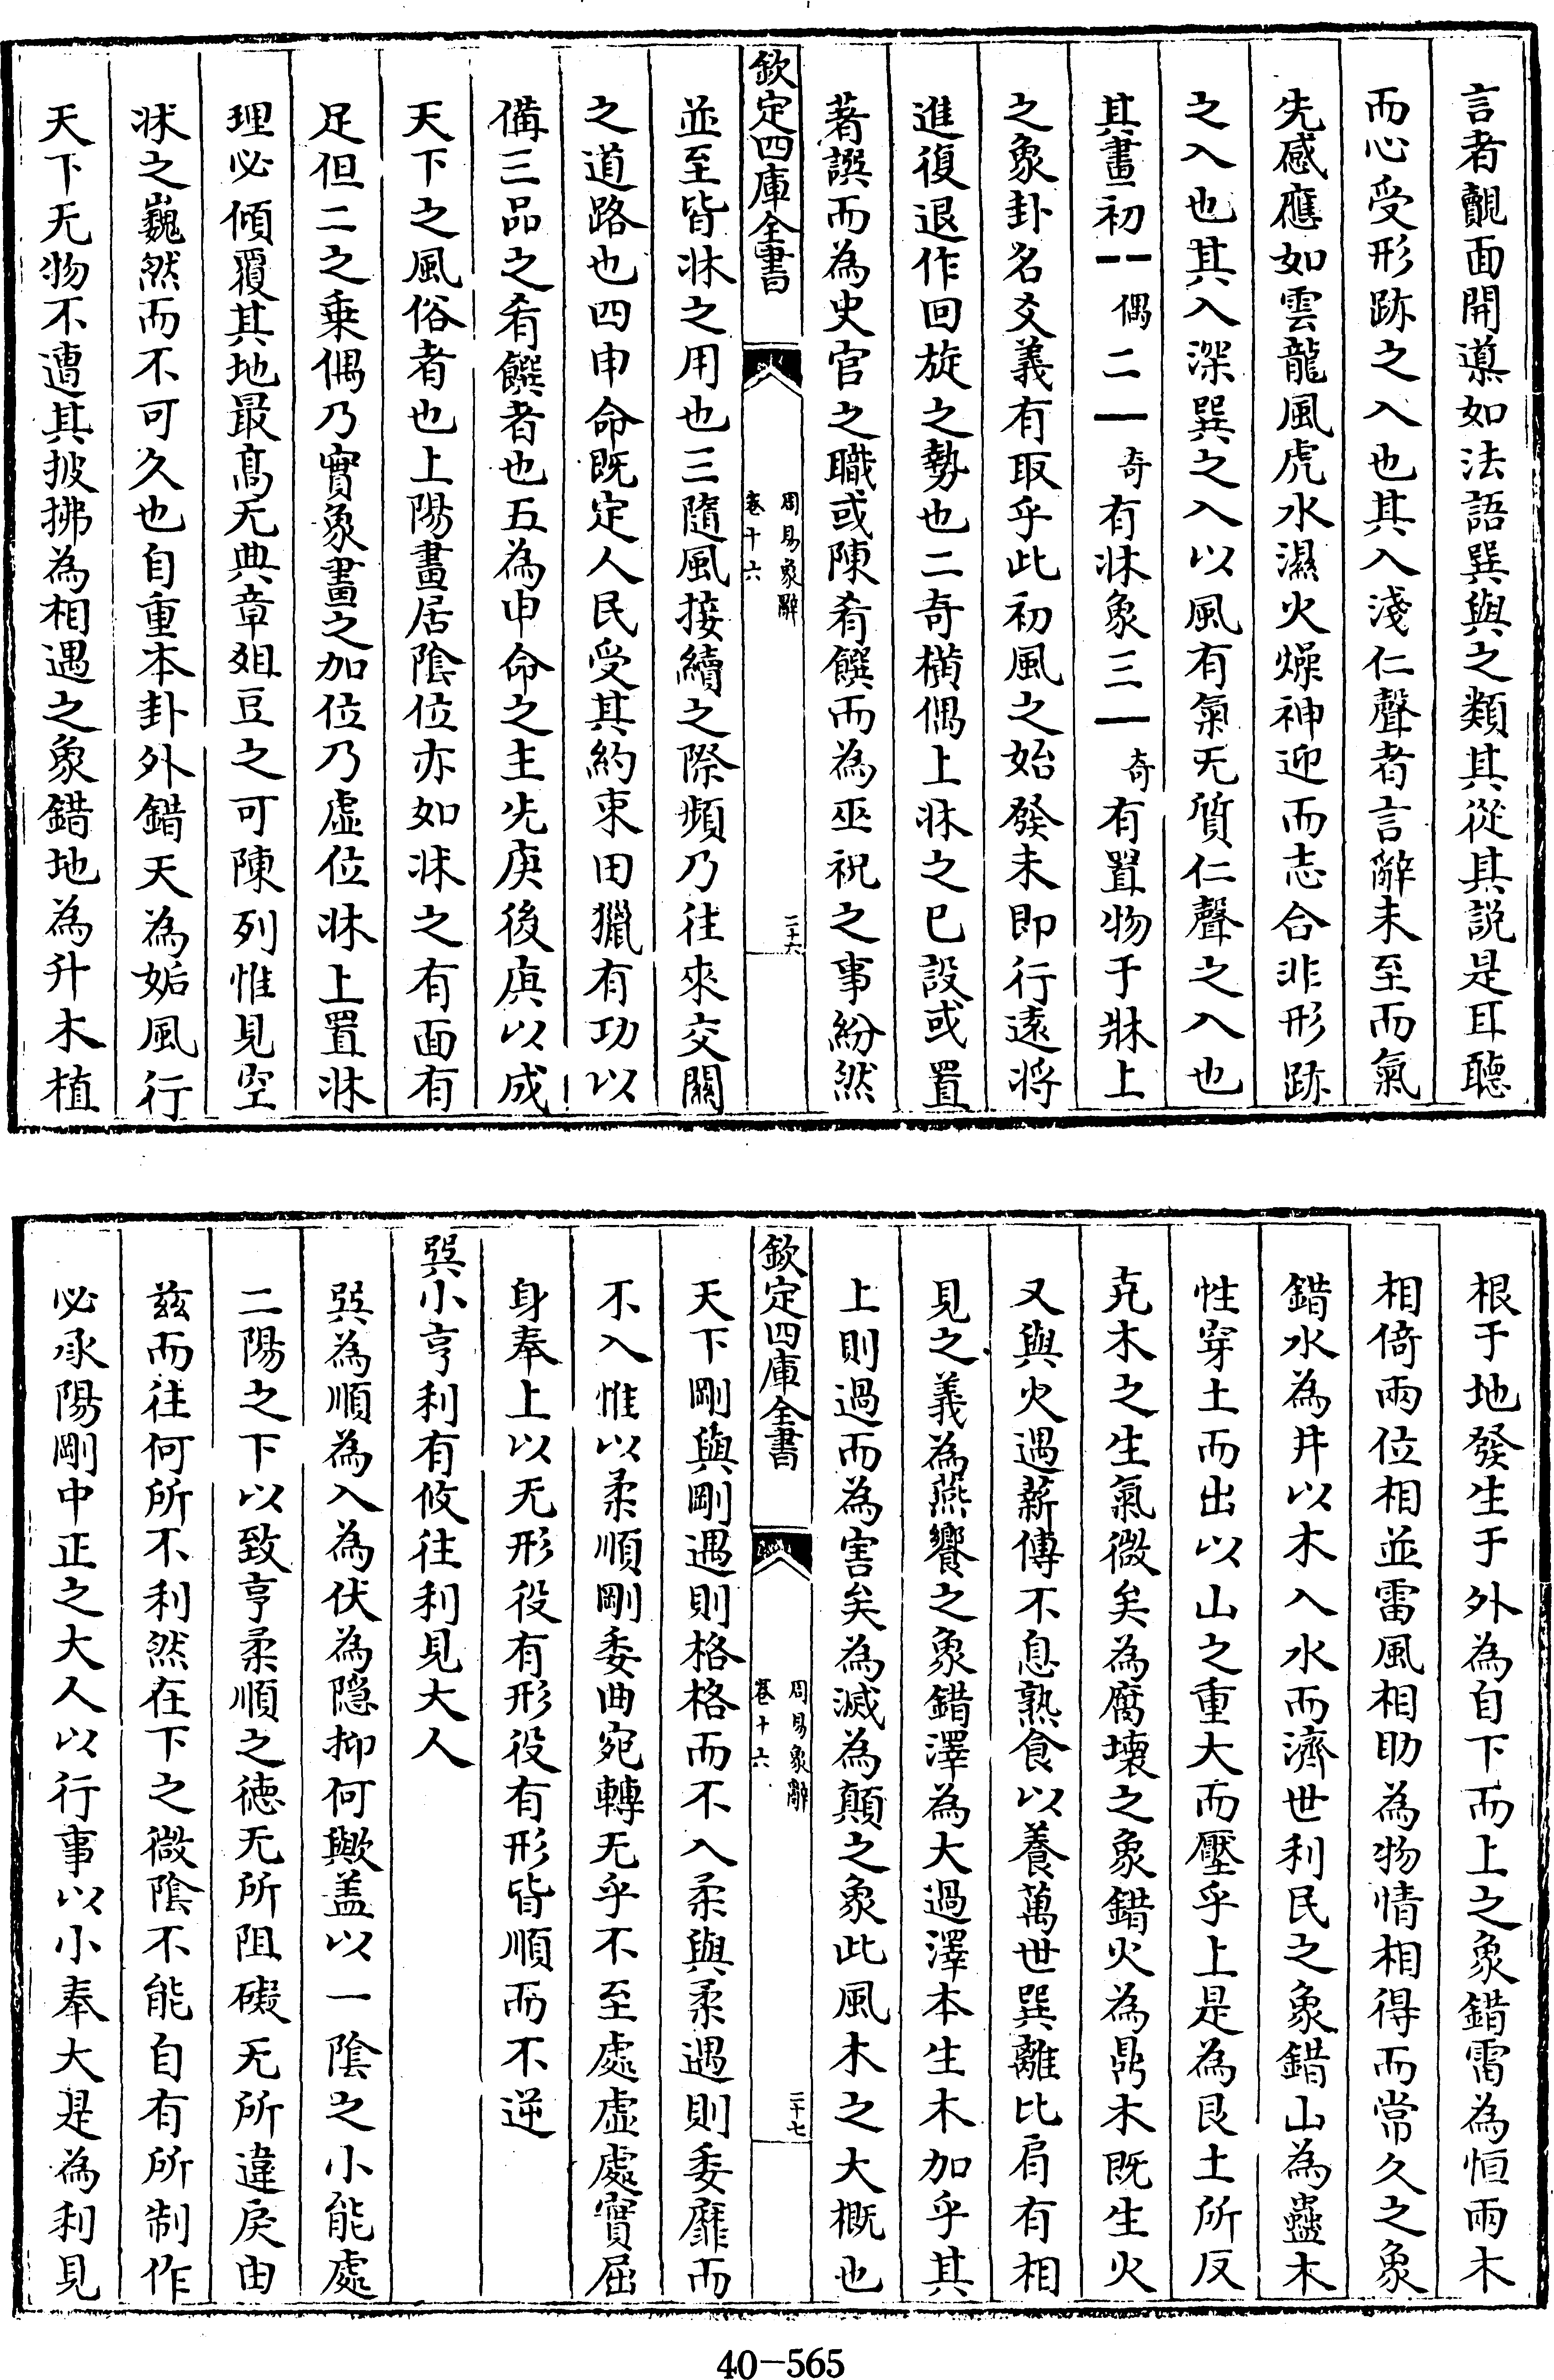 言者覿面開導如法語巽與之類其從其説是耳聽
而心受形跡之入也其入淺仁聲者言辭未至而氣
先感應如雲龍風虎水濕火燥神迎而志合非形跡
之入也其入深巽之入以風有氣无質仁聲之入也
其畫初⚋偶二⚊奇有牀象三⚊奇有置物于牀上
之象卦名爻義有取乎此初風之始發未即行遠將
進復退作回旋之勢也二奇橫偶上牀之已設或置
著譔而為史官之職或陳肴饌而為巫祝之事紛然
欽定四庫全書
周易象辭
卷十六
二十六
並至皆牀之用也三隨風接續之際頻乃往來交關
之道路也四申命既定人民受其約束田獵有功以
備三品之肴饌者也五為申命之主先庚後庚以成
天下之風俗者也上陽畫居陰位亦如牀之有面有
足但二之乗偶乃實象畫之加位乃虛位牀上置牀
理必傾覆其地最髙无典章俎豆之可陳列惟見空
牀之巍然而不可久也自重本卦外錯天為姤風行
天下无物不遭其披拂為相遇之象錯地為升木植
根于地發生于外為自下而上之象錯雷為恒雨木
相倚兩位相並雷風相助為物情相得而常久之象
錯水為井以木入水而濟世利民之象錯山為蠱木
性穿土而出以山之重大而壓乎上是為艮土所反
克木之生氣微矣為腐壞之象錯火為鼎木既生火
又與火遇薪傳不息熟食以養萬世巽離比肩有相
見之義為燕饗之象錯澤為大過澤本生木加乎其
上則過而為害矣為滅為顛之象此風木之大概也
欽定四庫全書
周易象辭
卷十六
二十七
天下剛與剛遇則格格而不入柔與柔遇則委靡而
不入惟以柔順剛委曲宛轉无乎不至處虛處實屈
身奉上以无形役有形役有形皆順而不逆
巽小亨利有攸往利見大人
巽為順為入為伏為隱抑何歟盖以一陰之小能處
二陽之下以致亨柔順之徳无所阻礙无所違戾由
兹而往何所不利然在下之微陰不能自有所制作
必承陽剛中正之大人以行事以小奉大是為利見
40-565